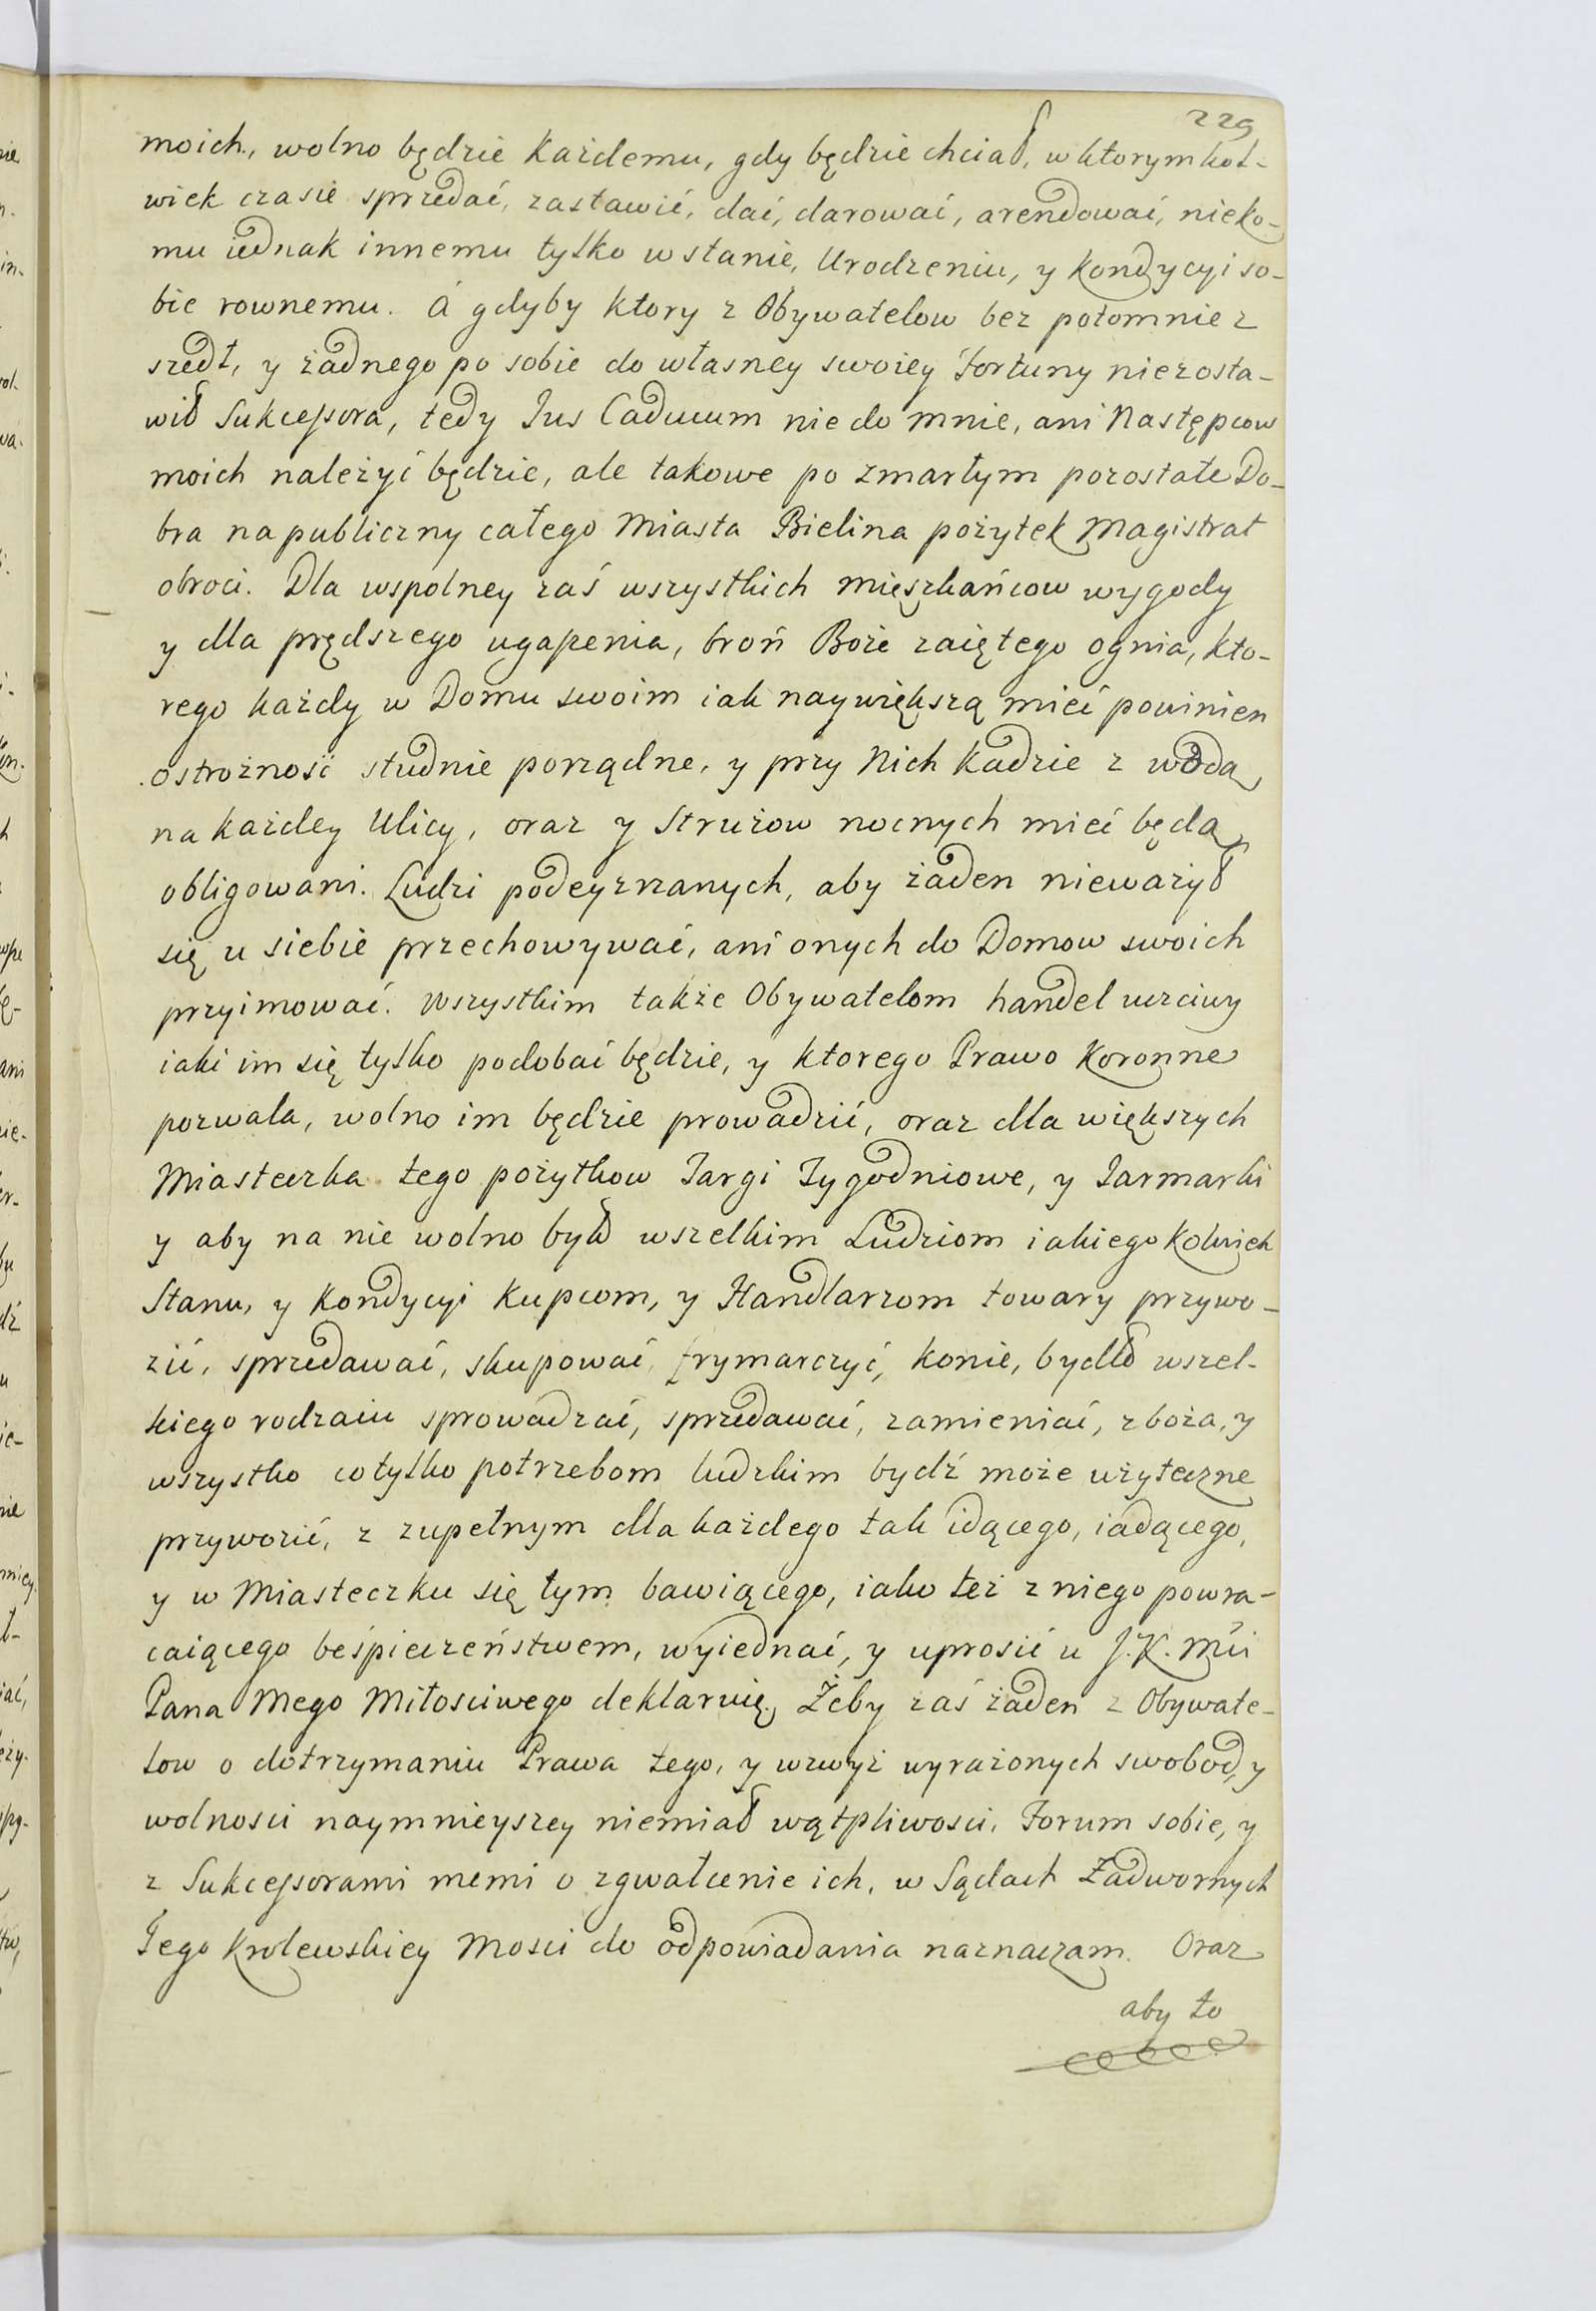 229
moich, wolno będzie każdemu, gdy będzie chciał, w ktorymkol-
wiek czasie sprzedać, zastawić, dać, darować, arendować, nieko-
mu iednak innemu tylko w stanie, Urodzeniu, y Kondycyi so-
bie rownemu. A gdyby ktory z Obywatelow bez potomnie z
szedł, y żadnego po sobie do własney swoiey Fortuny niezosta-
wił Sukcessora, tedy Ius Caducum nie do mnie, ani Następcow
moich należyć będzie, ale takowe po zmarłym pozostałe Do-
bra na publiczny całego Miasta Bielina pożytek Magistrat
obroci. Dla wspolney zaś wszystkich Mieszkańcow wygody
y dla prędszego ugaszenia, broń Boże zaiętego ognia, kto-
rego każdy w Domu swoim iak naywiększą mieć powinien
ostrożność studnie porządne, y przy Nich Kadzie z wodą
na każdey Ulicy, oraz y Strużow nocnych mieć będą
obligowani. Ludzi podeyzrzanych, aby żaden nieważył
się u siebie przechowywać, ani onych do Domow swoich
przyimować. Wszystkim także Obywatelom handel uczciwy
iaki im się tylko podobać będzie, y ktorego Prawo Koronne
pozwala, wolno im będzie prowadzić, oraz dla większych
Miasteczka tego pożytkow Targi Tygodniowe, y Iarmarki
y aby na nie wolno było wszelkim Ludziom iakiego Kolwiek
Stanu, y Kondycyi Kupcom, y Handlarzom towary przywo-
zić, sprzedawać, skupować, frymarczyć, Konie, bydło wszel-
kiego rodzaiu sprowadzać, sprzedawać, zamieniać, zboża, y
wszystko co tylko potrzebom ludzkim bydź może użyteczne
przywozić, z zupełnym dla każdego tak idącego, iadącego,
y w Miasteczku się tym bawiącego, iako też z niego powra-
caiącego beśpieczeństwem, wyiednać, y uprosić u J. K. Mci
Pana Mego Miłosciwego deklaruię. Żeby zaś żaden z Obywate-
low o dotrzymaniu Prawa tego, y wzwyż wyrażonych swobod, y
wolnosci naymnieyszey niemiał wątpliwosci, Forum sobie, y
z Sukcessorami memi o zgwałcenie ich, w Sądach Zadwornych
Jego Krolewskiey Mosci do odpowiadania naznaczam. Oraz
aby to